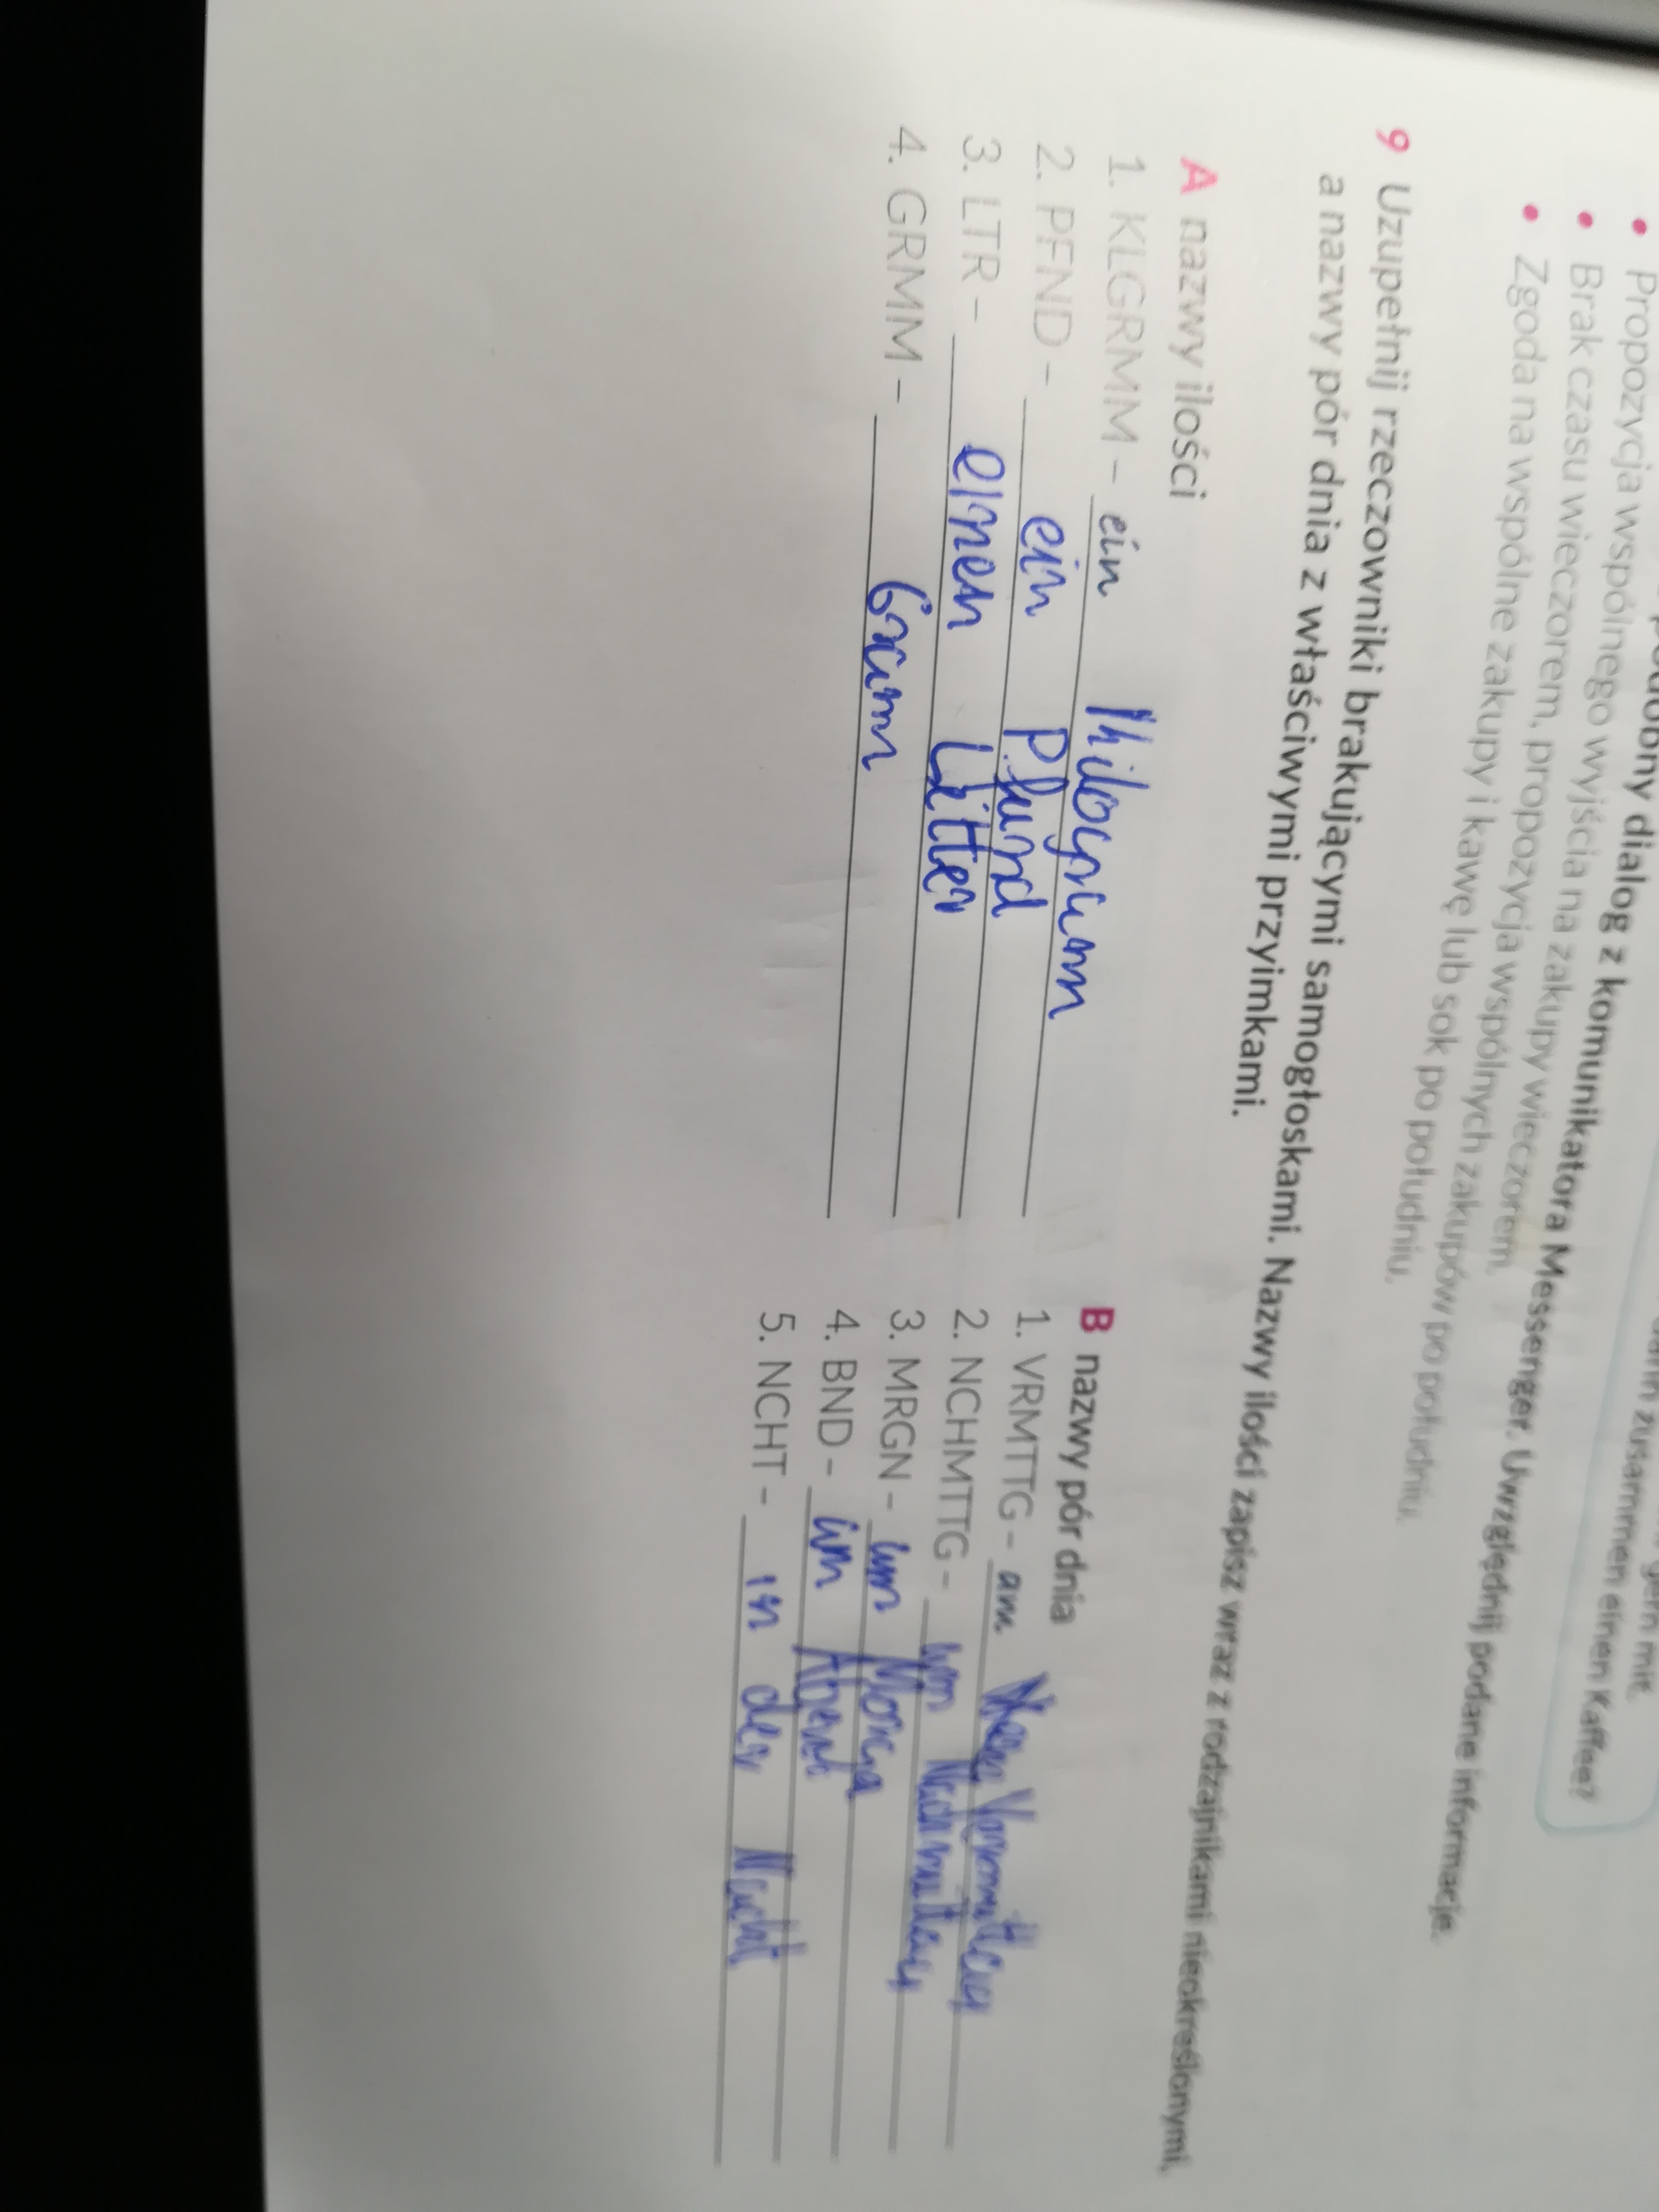 dialog z komunikatora Messenger. Uwzględnij podane informacje.
• Propozycja wspólnego wyjścia na zakupy wieczorem.
• Brak czasu wieczorem, propozycja wspólnych zakupów po południu.
• Zgoda na wspólne zakupy i kawę lub sok po południu.
zusammen einen Kaffee?
9 Uzupełnij rzeczowniki brakującymi samogłoskami. Nazwy ilości zapisz wraz z rodzajnikami nieokreślonymi,
a nazwy pór dnia z właściwymi przyimkami.
A nazwy ilości
1. KLGRMM – ein Kilogramm
2. PFND – ein Pfund
3. LTR – einen Litter
4. GRMM – Gramm
B nazwy pór dnia
1. VRMTTG – am Vormittag
2. NCHMTTG – am Nachmittag
3. MRGN – am
4. BND – am
5. NCHT – in der Nacht